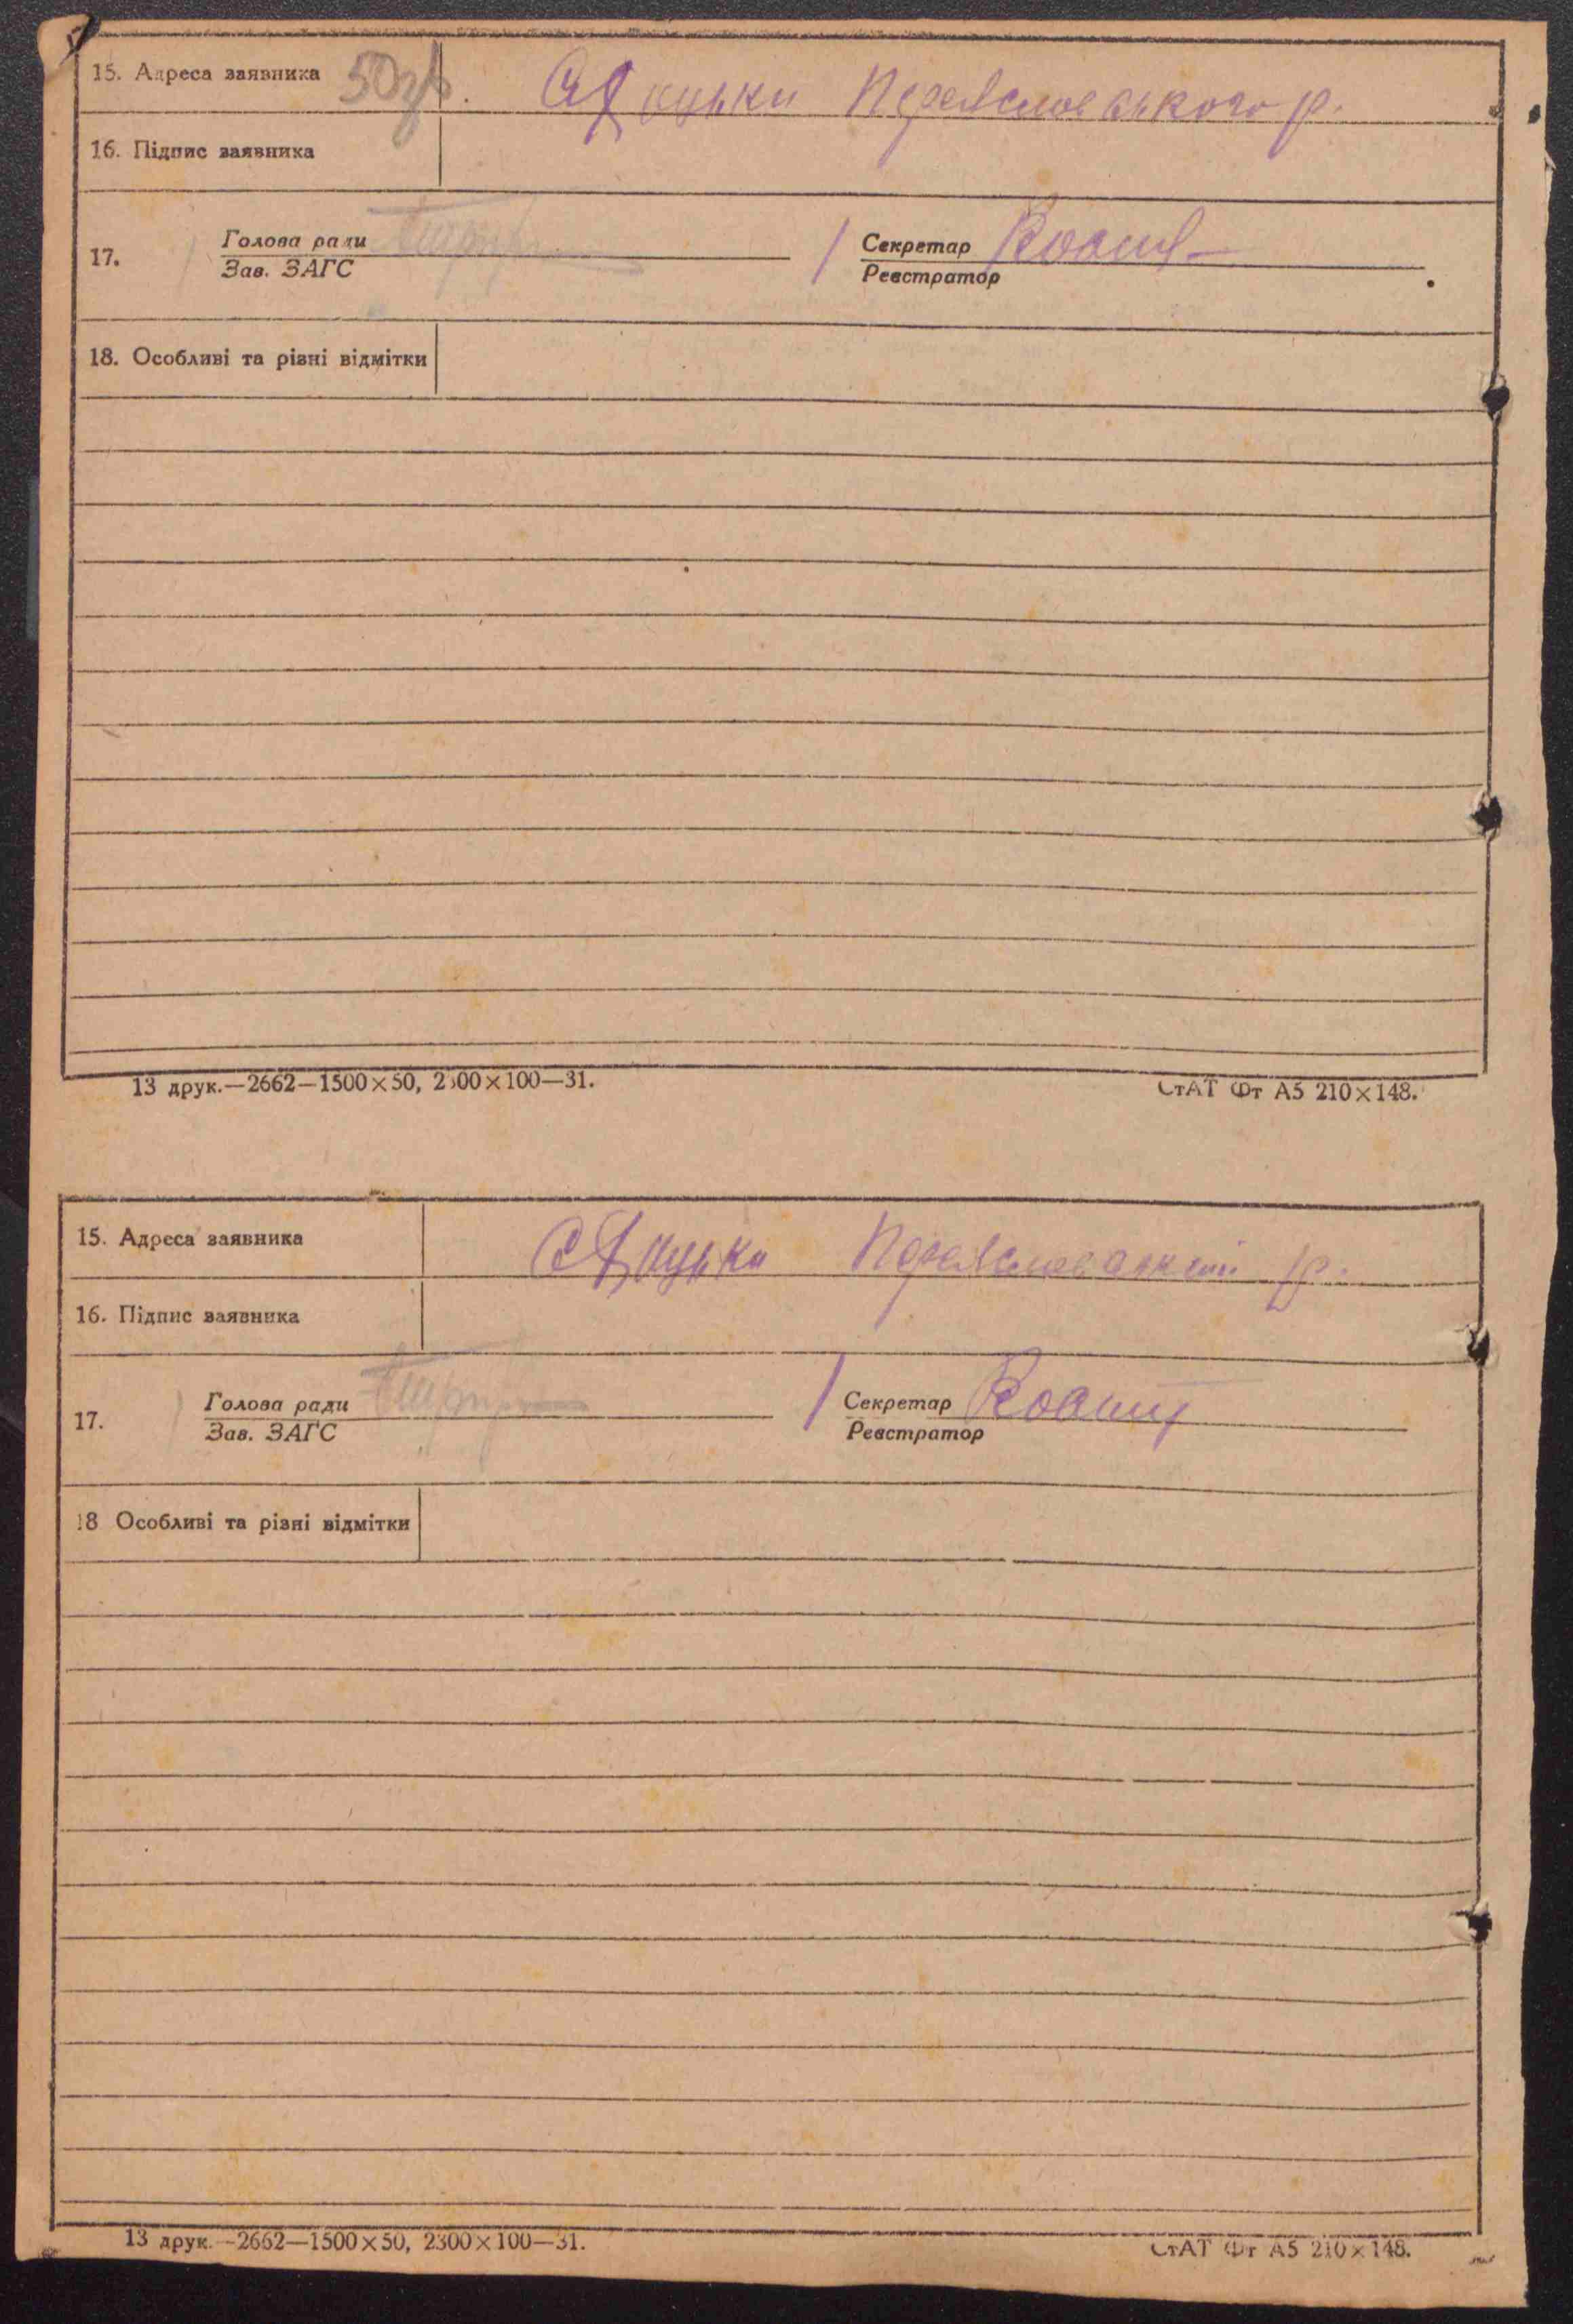 15. Адреса заявника 50зв. с Яцьки Переяславського р.
16. Підпис заявника
17. Голова ради Секретар
Зав. ЗАГС Реєстратор
18. Особливі та різні відмітки
13 друк.—2662—1500×50, 2300×100—31. СтАТ Фт А5 210×148.
15. Адреса заявника с Яцьки Переяславський р.
16. Підпис заявника
17. Голова ради Секретар
Зав. ЗАГС Реєстратор
18 Особливі та різні відмітки
13 друк.—2662—1500×50, 2300×100—31. СтАТ Фт А5 210×148.